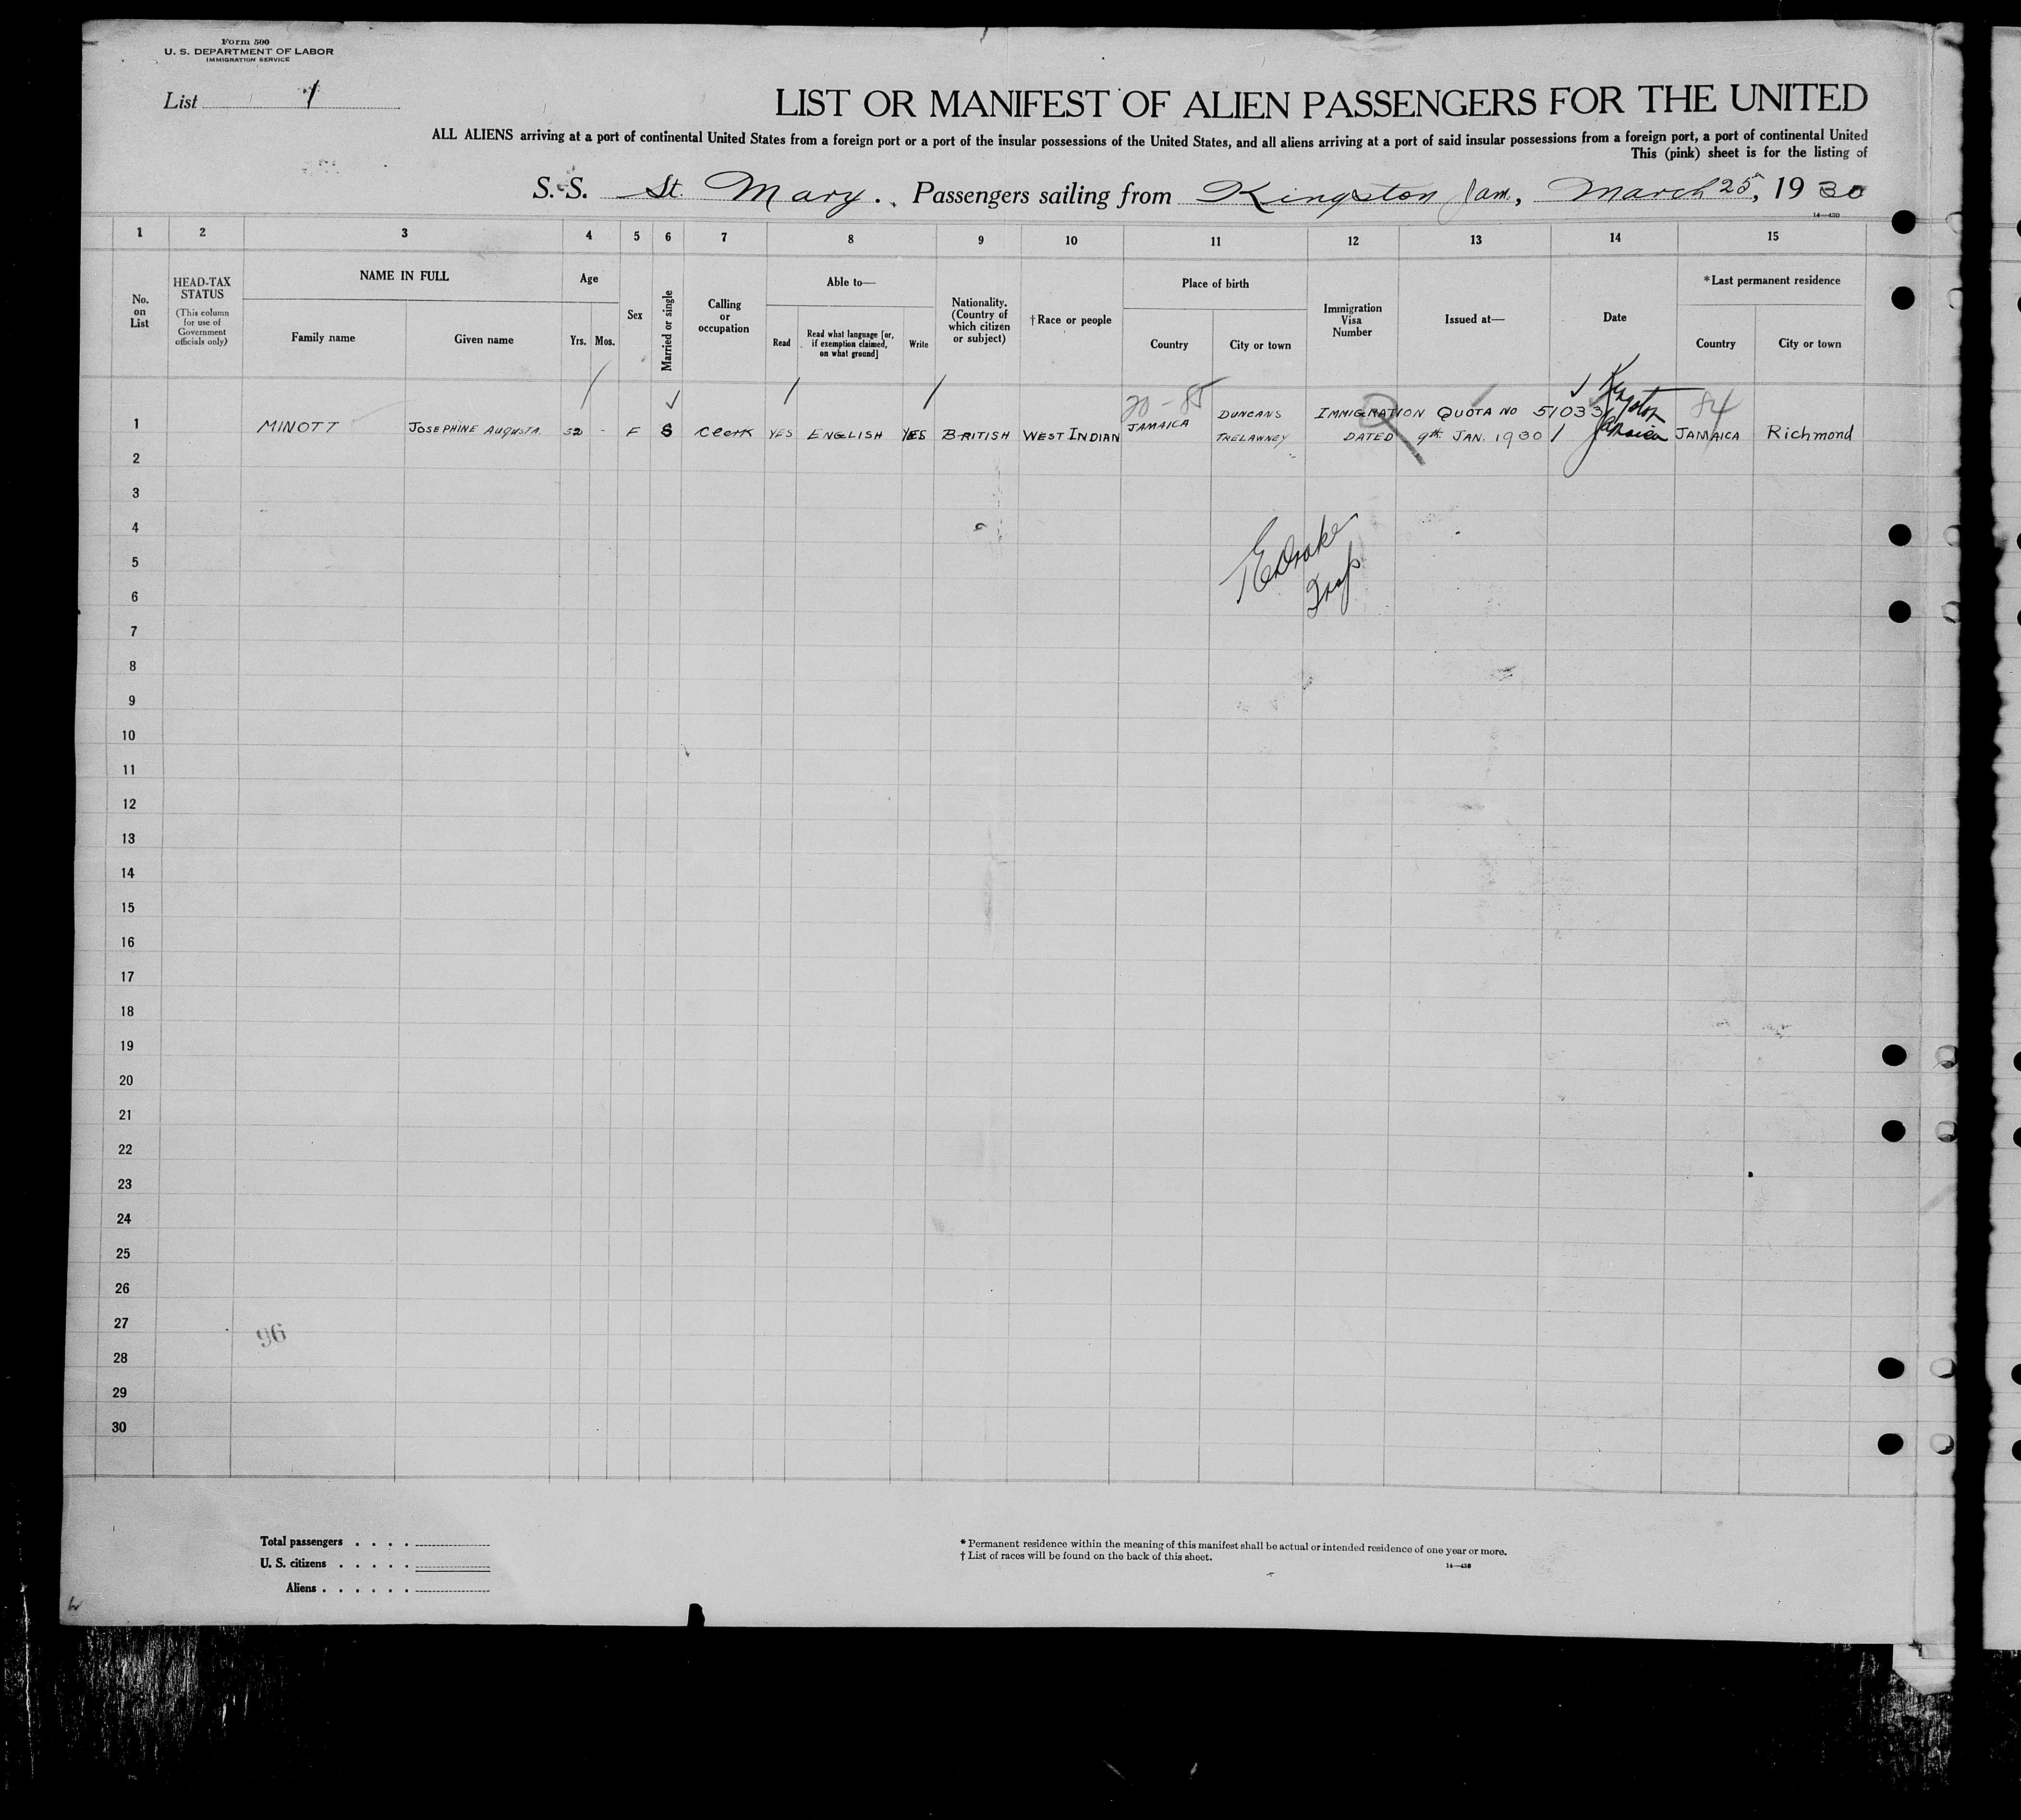 Form 500
U. S. DEPARTMENT OF LABOR
IMMIGRATION SERVICE
List 1
LIST OR MANIFEST OF ALIEN PASSENGERS FOR THE UNITED
ALL ALIENS arriving at a port of continental United States from a foreign port or a port of the insular possessions of the United States, and all aliens arriving at a port of said insular possessions from a foreign port, a port of continental United
This (pink) sheet is for the listing of
S. S. St. Mary. Passengers sailing from Kingston Jam., March 25, 1930
14—430
1 2 3 4 5 6 7 8 9 10 11 12 13 14 15
No. on List
HEAD-TAX STATUS
(This column for use of Government officials only)
NAME IN FULL
Family name Given name
Age
Yrs. Mos.
Sex
Married or single
Calling or occupation
Able to—
Read
Read what language [or, if exemption claimed, on what ground]
Write
Nationality. (Country of which citizen or subject)
†Race or people
Place of birth
Country City or town
Immigration Visa Number
Issued at—
Date
*Last permanent residence
Country City or town
20-85 Kingston Jamaica 84
DUNCANS IMMIGRATION QUOTA NO 51033
1 MINOTT JOSEPHINE AUGUSTA 32 - F S Clerk YES ENGLISH YES BRITISH WEST INDIAN JAMAICA TRELAWNEY DATED 9th JAN. 1930 JAMAICA Richmond
2
3
4
5
6
7
8
9
10
11
12
13
14
15
16
17
18
19
20
21
22
23
24
25
26
27
96
28
29
30
Total passengers . . . .
U. S. citizens . . . . .
Aliens . . . . . .
* Permanent residence within the meaning of this manifest shall be actual or intended residence of one year or more.
† List of races will be found on the back of this sheet.
14—430